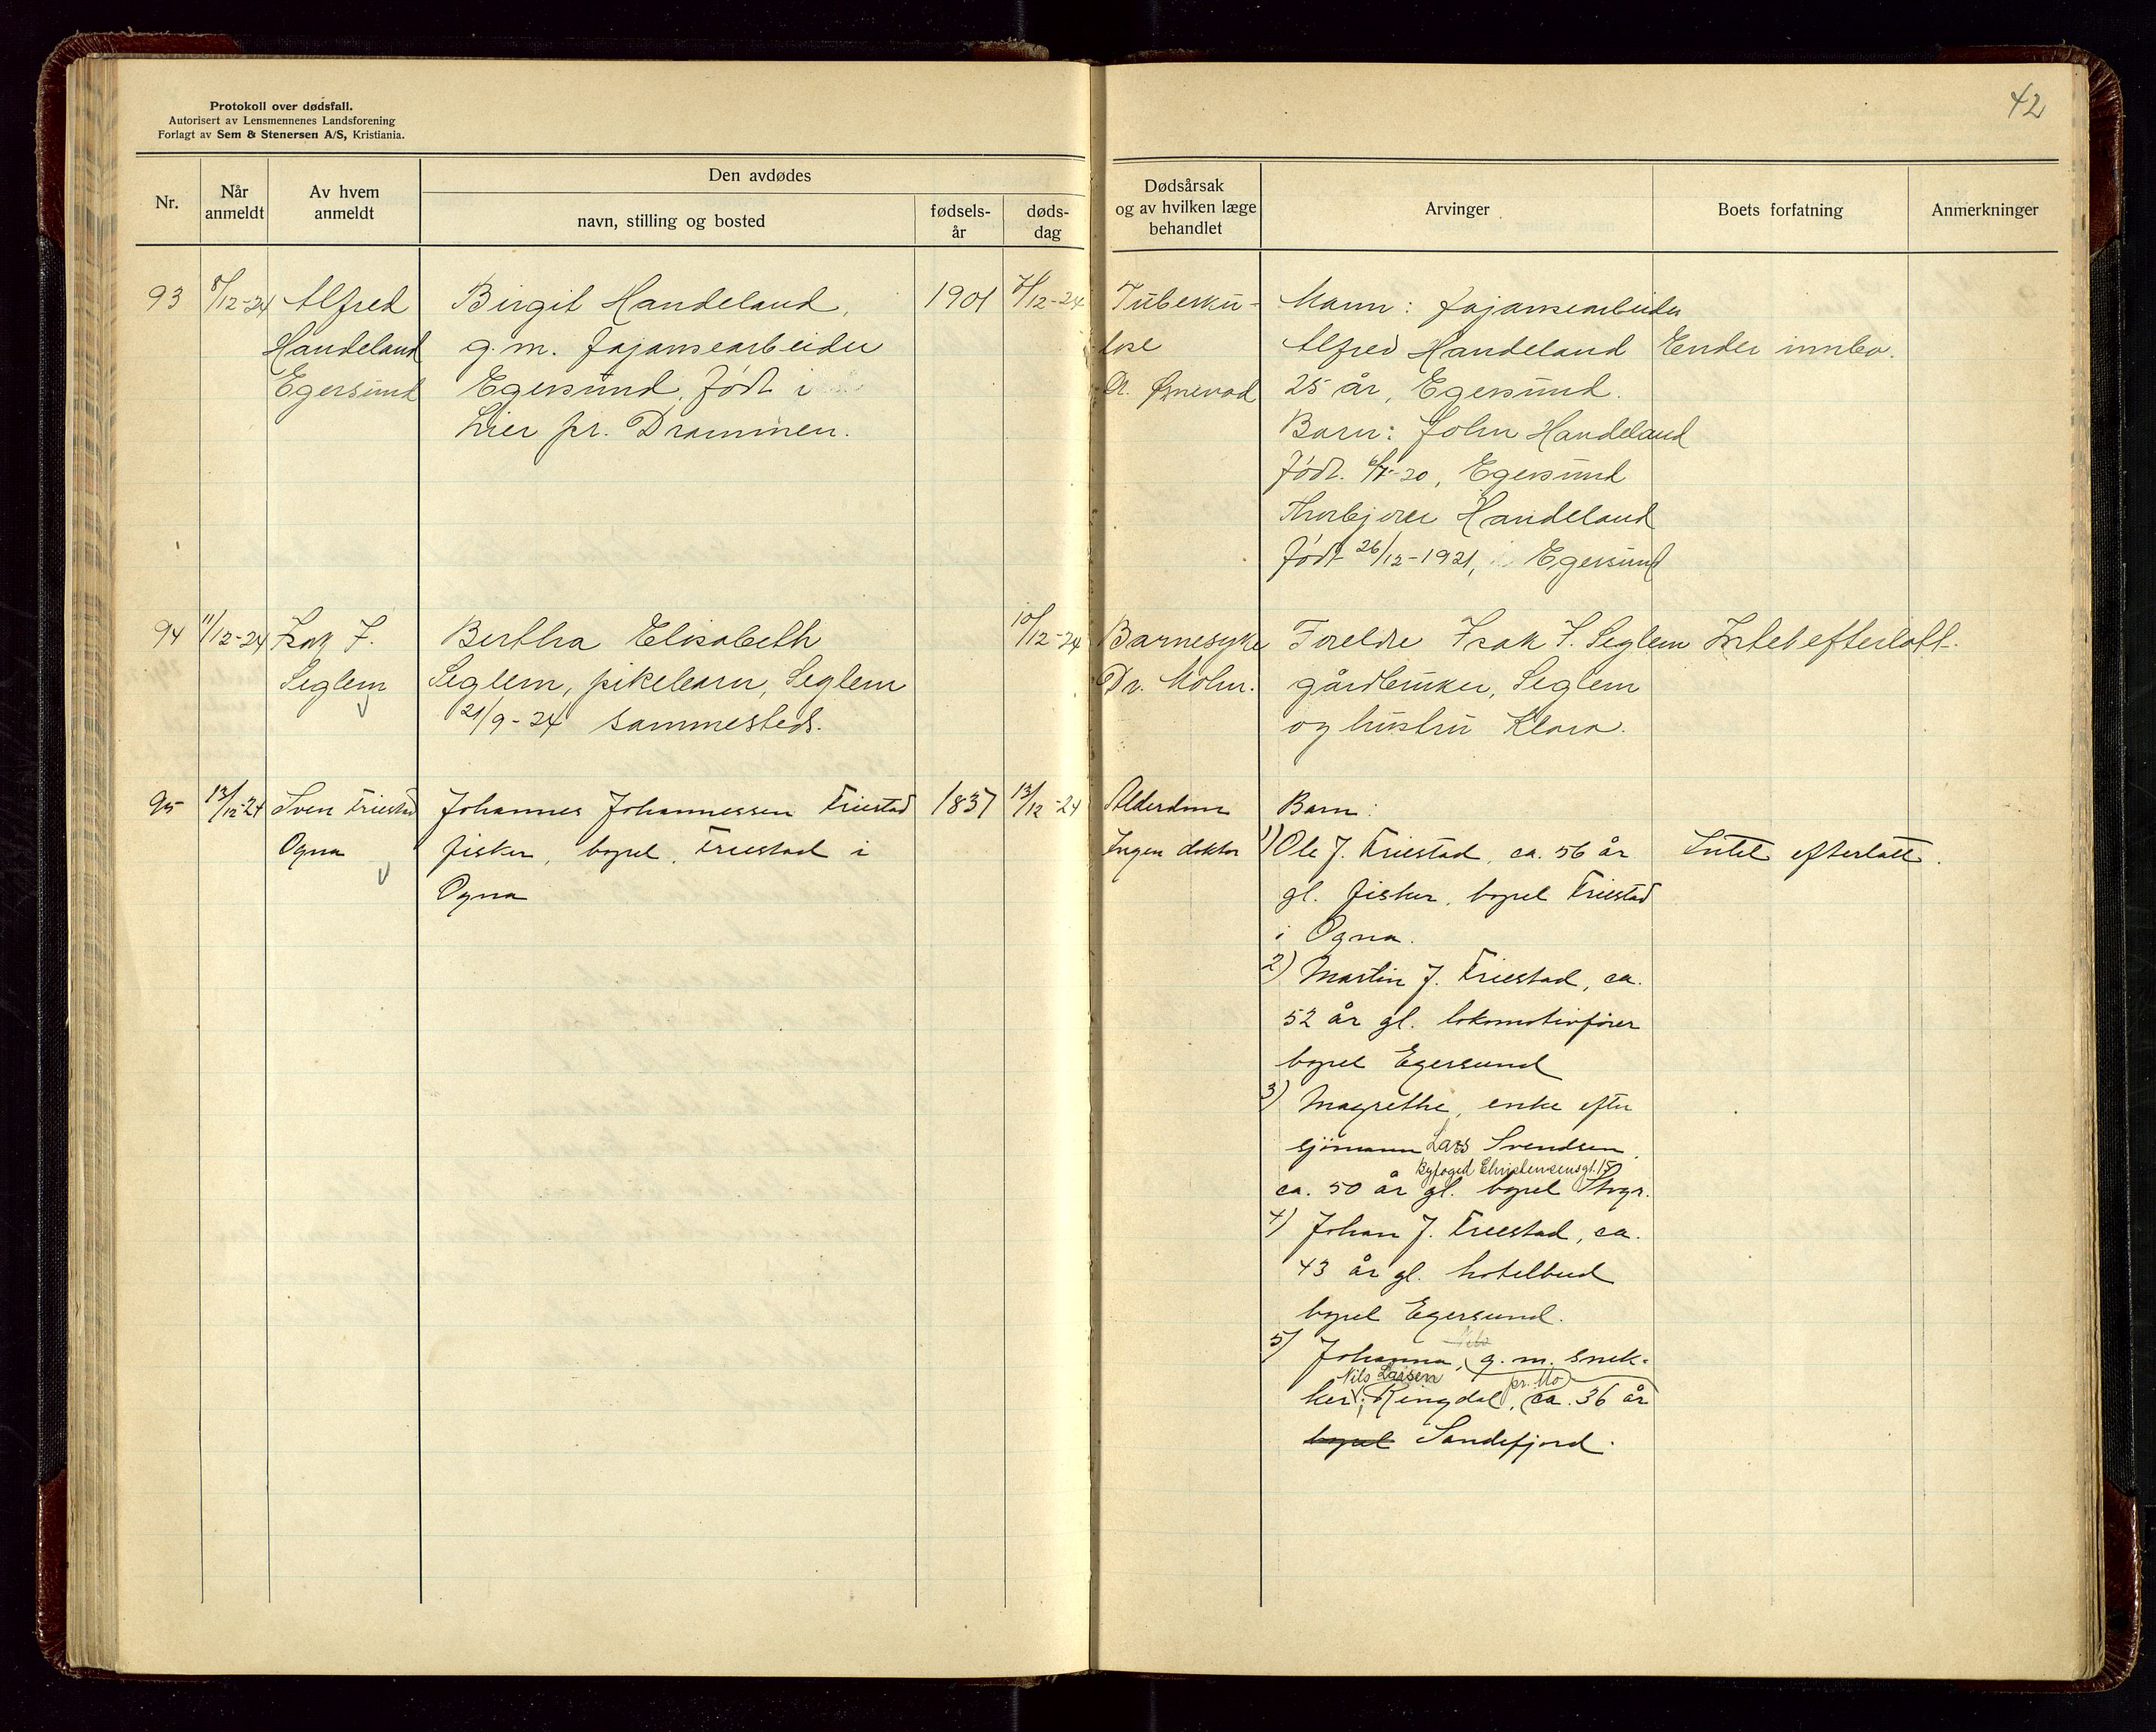 Protokoll over dødsfall.
Autorisert av Lensmennenes Landsforening
Forlagt av Sem & Stenersen A/S, Kristiania.
42
Nr.
Når anmeldt
Av hvem anmeldt
Den avdødes
navn, stilling og bosted
fødsels-år
døds-dag
Dødsårsak
og av hvilken læge
behandlet
Arvinger
Boets forfatning
Anmerkninger
93
8/12-24
Alfred
Handeland
Egersund
Birgit Handeland,
g.m. fajansearbeider
Egersund, født i
Lier pr. Drammen.
1901
7/12-24
Tuberku-
lose
Dr.
Mann: fajansearbeider
Alfred Handeland
25 år, Egersund.
Barn: John Handeland
født. -20, Egersund
Thorbjørn Handeland
født 26/12-1921, Egersund
Endel innbo.
94
11/12-24
Isak J.
Seglem
Bertha Elisabeth
Seglem, pikebarn, Seglem
21/9-24 sammesteds.
10/12-24
Barnesyke
Dr. Mohn.
Foreldre Isak J. Seglem
gårdbruker, Seglem
og hustru Klara.
Intet efterlatt.
95
13/12-24
Sven Friestad
Ogna
Johannes Johannessen Friestad
fisker, bopel, Friestad i
Ogna
1837
13/12-24
Alderdom
Ingen doktor
Barn:
1) Ole J. Friestad, ca. 56 år
gl. fisker, bopel Friestad
i Ogna.
2) Martin J. Friestad, ca.
52 år gl. lokomotivfører
bopel Egersund
3) Magrethe, enke efter
sjømann Lars Svendsen,
Byfoged Christensensgt. 15
ca. 50 år gl. bopel Stvgr.
4) Johan J. Friestad, ca.
43 år gl. hotelbud
bopel Egersund.
5) Johanna, g.m. snek-
Nils Larsen pr. Mo
ker, Ringdal, ca. 36 år
bopel Sandefjord.
Intet efterlatt.